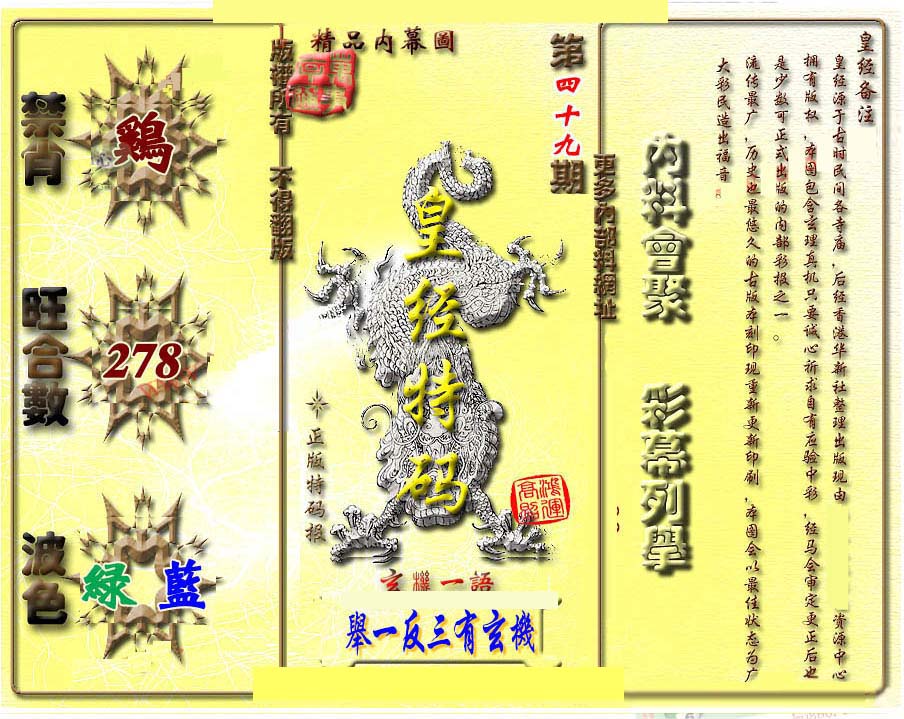 皇经备注
皇经源于古时民间各寺庙,后经香港华新社整理出版现由 资源中心
拥有版权,本图包含玄理真机只要诚心祈求自有应验中彩,经马会审定更正后也
是少数可正式出版的内部彩报之一。
流传最广,历史也最悠久的古版本刻印现重新更新印刷,本图会以最佳状态为广
大彩民造出福音
内料會聚
彩幕列舉
更多內部料網址
第四十九期
精品内幕圖
皇经特码
正版特码报
鴻運
高照
玄機一語
舉一反三有玄機
版權所有 不得翻版
禁肖
鷄
旺合數
278
波色
綠 藍